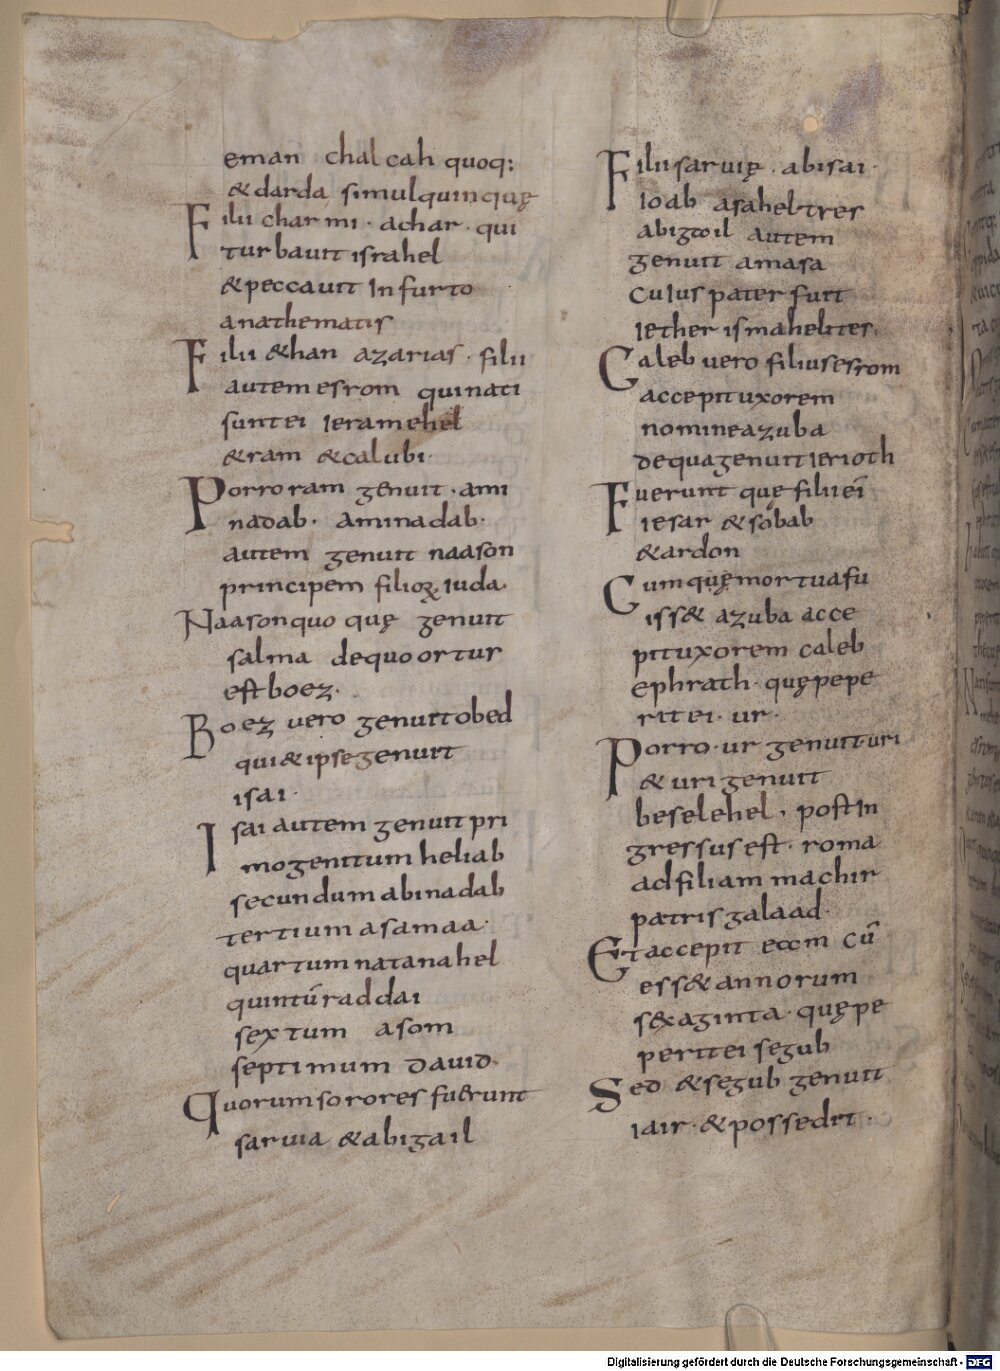 eman chalcah quoq:
& darda simul quinquę
Filii charmi · achar · qui
turbauit israhel
& peccauit in furto
anathematis
Filii &han azarias · filii
autem esrom qui nati
sunt ei ieramehel
& ram & calubi ·
Porro ram genuit · ami
nadab · aminadab ·
autem genuit naason
principem filioꝝ iuda ·
Naason quo quę genuit
salma de quo ortur
est boez ·
Boez uero genuit obed
qui & ipse genuit
isai ·
Isai autem genuit pri
mogenitum heliab
secundum abinadab
tertium asamaa ·
quartum natanahel
quintū raddai
sextum asom
septimum dauid ·
Quorum sorores fuerunt
saruia & abigail
Filii saruię · abisai ·
ioab asahel · tres
abigoil autem
genuit amasa
cuius pater fuit
iether ismahelites ·
Caleb uero filius esrom
accepit uxorem
nomine azuba
de qua genuit ierioth
Fuerunt quę filii ei
iesar & sobab
& ardon
Cumquę mortua fu
iss& azuba acce
pit uxorem caleb
ephrath · quę pepe
rit ei · ur ·
Porro · ur genuit uri
& uri genuit
beselehel · post in
gressus est · roma
ad filiam machir
patris galaad ·
Et accepit eam cū
ess& annorum
sexaginta · quę pe
perit ei segub
Sed & segub genuit
iair · & possedit ·
Digitalisierung gefördert durch die Deutsche Forschungsgemeinschaft - DFG